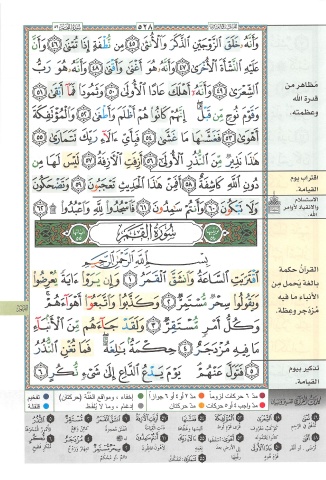 ٥٢٨
وَأَنَّهُۥ خَلَقَ ٱلزَّوْجَيْنِ ٱلذَّكَرَ وَٱلْأُنثَىٰ ٤٥ مِن نُّطْفَةٍ إِذَا تُمْنَىٰ ٤٦ وَأَنَّ
عَلَيْهِ ٱلنَّشْأَةَ ٱلْأُخْرَىٰ ٤٧ وَأَنَّهُۥ هُوَ أَغْنَىٰ وَأَقْنَىٰ ٤٨ وَأَنَّهُۥ هُوَ رَبُّ
ٱلشِّعْرَىٰ ٤٩ وَأَنَّهُۥٓ أَهْلَكَ عَادًا ٱلْأُولَىٰ ٥٠ وَثَمُودَا۟ فَمَآ أَبْقَىٰ ٥١
وَقَوْمَ نُوحٍ مِّن قَبْلُ إِنَّهُمْ كَانُوا۟ هُمْ أَظْلَمَ وَأَطْغَىٰ ٥٢ وَٱلْمُؤْتَفِكَةَ
أَهْوَىٰ ٥٣ فَغَشَّىٰهَا مَا غَشَّىٰ ٥٤ فَبِأَىِّ ءَالَآءِ رَبِّكَ تَتَمَارَىٰ ٥٥
هَٰذَا نَذِيرٌ مِّنَ ٱلنُّذُرِ ٱلْأُولَىٰٓ ٥٦ أَزِفَتِ ٱلْءَازِفَةُ ٥٧ لَيْسَ لَهَا مِن
دُونِ ٱللَّهِ كَاشِفَةٌ ٥٨ أَفَمِنْ هَٰذَا ٱلْحَدِيثِ تَعْجَبُونَ ٥٩ وَتَضْحَكُونَ
وَلَا تَبْكُونَ ٦٠ وَأَنتُمْ سَٰمِدُونَ ٦١ فَٱسْجُدُوا۟ لِلَّهِ وَٱعْبُدُوا۟ ۩ ٦٢
سُورَةُ القَمَر
بِسْمِ ٱللَّهِ ٱلرَّحْمَٰنِ ٱلرَّحِيمِ
ٱقْتَرَبَتِ ٱلسَّاعَةُ وَٱنشَقَّ ٱلْقَمَرُ ١ وَإِن يَرَوْا۟ ءَايَةً يُعْرِضُوا۟
وَيَقُولُوا۟ سِحْرٌ مُّسْتَمِرٌّ ٢ وَكَذَّبُوا۟ وَٱتَّبَعُوٓا۟ أَهْوَآءَهُمْ
وَكُلُّ أَمْرٍ مُّسْتَقِرٌّ ٣ وَلَقَدْ جَآءَهُم مِّنَ ٱلْأَنۢبَآءِ
مَا فِيهِ مُزْدَجَرٌ ٤ حِكْمَةٌۢ بَٰلِغَةٌ فَمَا تُغْنِ ٱلنُّذُرُ
٥ فَتَوَلَّ عَنْهُمْ يَوْمَ يَدْعُ ٱلدَّاعِ إِلَىٰ شَىْءٍ نُّكُرٍ ٦
مظاهر من
قدرة الله
وعظمته.
اقتراب يوم
القيامة.
الاستسلام
والانقياد لأوامر
الله.
القرآن حكمة
بالغة يحمل من
الأنباء ما فيه
مُزدجر وعظة.
تذكير بيوم
القيامة.
مد ٦ حركات لزوماً
مد ٢ أو ٤ أو ٦ جوازاً
إخفاء، ومواقع الغنة (حركتان)
تفخيم
مد واجب ٤ أو ٥ حركات
مد حركتان
إدغام، وما لا يُلفظ
قلقلة